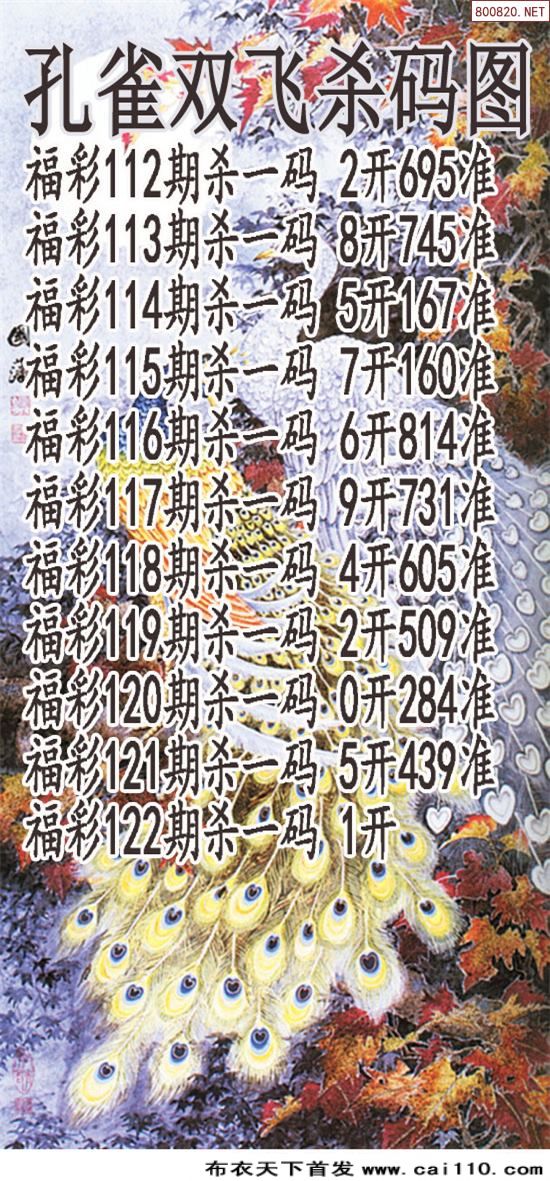 800820.NET
孔雀双飞杀码图
福彩112期杀一码 2开695准
福彩113期杀一码 8开745准
福彩114期杀一码 5开167准
福彩115期杀一码 7开160准
福彩116期杀一码 6开814准
福彩117期杀一码 9开731准
福彩118期杀一码 4开605准
福彩119期杀一码 2开509准
福彩120期杀一码 0开284准
福彩121期杀一码 5开439准
福彩122期杀一码 1开
布衣天下首发 www.cai110.com